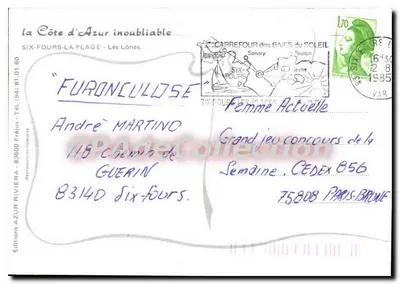 la Côte d'Azur inoubliable
SIX-FOURS-LA PLAGE - Les Lônes.
"FURONCULOSE"
André MARTINO
118 Chemin de
GUERIN
83140 Six-Fours.
Editions AZUR RIVIERA - 83600 Fréjus - Tél. (94) 81.01.60
CARREFOUR des BAIES du SOLEIL
Sanary
SIX-
FOURS
1,70
16H30
2 8
1985
VAR
Femme Actuelle
Grand jeu concours de la
Semaine. CEDEX 856
75808 PARIS-BRUNE